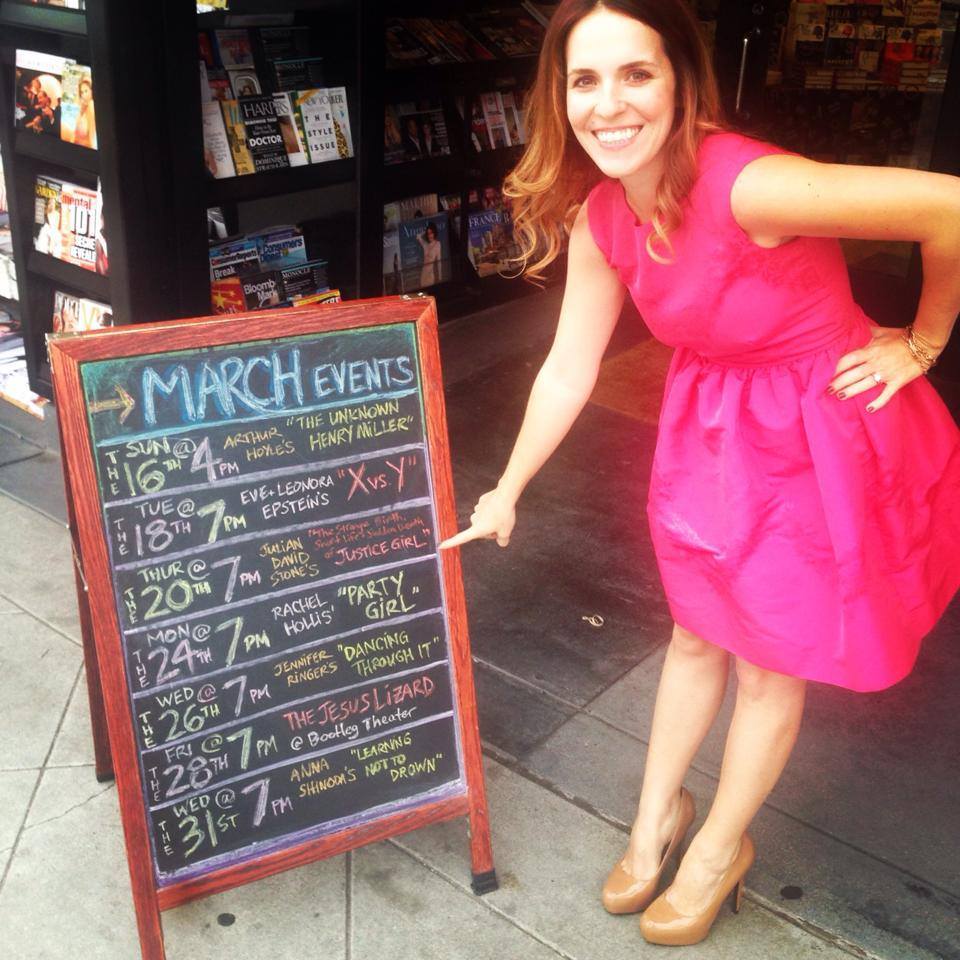 MARCH EVENTS
THE SUN @ 16TH 4PM ARTHUR HOYLE'S "THE UNKNOWN HENRY MILLER"
THE TUE @ 18TH 7PM EVE + LEONORA EPSTEIN'S "X vs. Y"
THE THUR @ 20TH 7PM JULIAN DAVID STONE'S "The Strange Birth, Short Life + Sudden Death of JUSTICE GIRL"
THE MON @ 24TH 7PM RACHEL HOLLIS' "PARTY GIRL"
THE WED @ 26TH 7PM JENNIFER RINGER'S "DANCING THROUGH IT"
THE FRI @ 28TH 7PM THE JESUS LIZARD @ Bootleg Theater
THE WED @ 31ST 7PM ANNA SHINODA'S "LEARNING NOT TO DROWN"
HARPER'S
DOCTOR
NEW YORKER
THE STYLE ISSUE
mental
101
Consumers
Break
MONOCLE
Bloomberg Mark
FRANCE